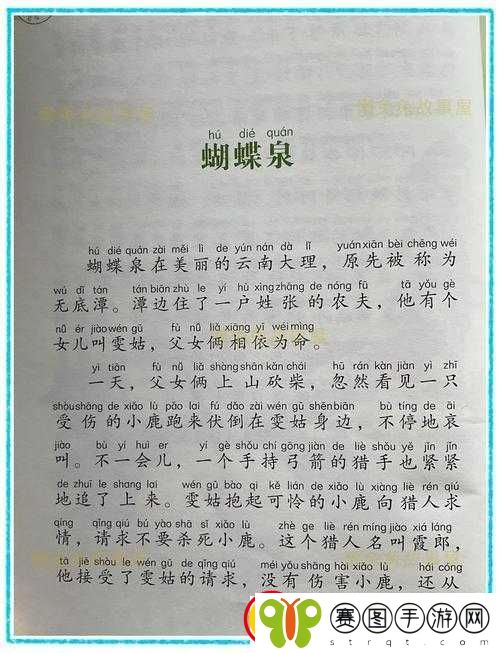 hú dié quán
蝴蝶泉
hú dié quán zài měi lì de yún nán dà lǐ yuán xiān bèi chēng wéi
蝴蝶泉在美丽的云南大理，原先被称为
wú dǐ tán tán biān zhù le yí hù xìng zhāng de nóng fū tā yǒu gè
无底潭。潭边住了一户姓张的农夫，他有个
nǚ ér jiào wén gū fù nǚ liǎ xiāng yī wéi mìng
女儿叫雯姑，父女俩相依为命。
yì tiān fù nǚ liǎ shàng shān kǎn chái hū rán kàn jiàn yì zhī
一天，父女俩上山砍柴，忽然看见一只
shòu shāng de xiǎo lù pǎo lái fú dǎo zài wén gū shēn biān bù tíng de āi
受伤的小鹿跑来伏倒在雯姑身边，不停地哀
jiào bù yí huì er yí gè shǒu chí gōng jiàn de liè shǒu yě jǐn jǐn
叫。不一会儿，一个手持弓箭的猎手也紧紧
de zhuī le shang lai wén gū bào qǐ kě lián de xiǎo lù xiàng liè rén qiú
地追了上来。雯姑抱起可怜的小鹿向猎人求
qíng qǐng qiú bú yào shā sǐ xiǎo lù zhè ge liè rén míng jiào xiá láng
情，请求不要杀死小鹿。这个猎人名叫霞郎，
tā jiē shòu le wén gū de qǐng qiú méi yǒu shāng hài xiǎo lù hái cóng
他接受了雯姑的请求，没有伤害小鹿，还从
赛图手游网
strqt.com